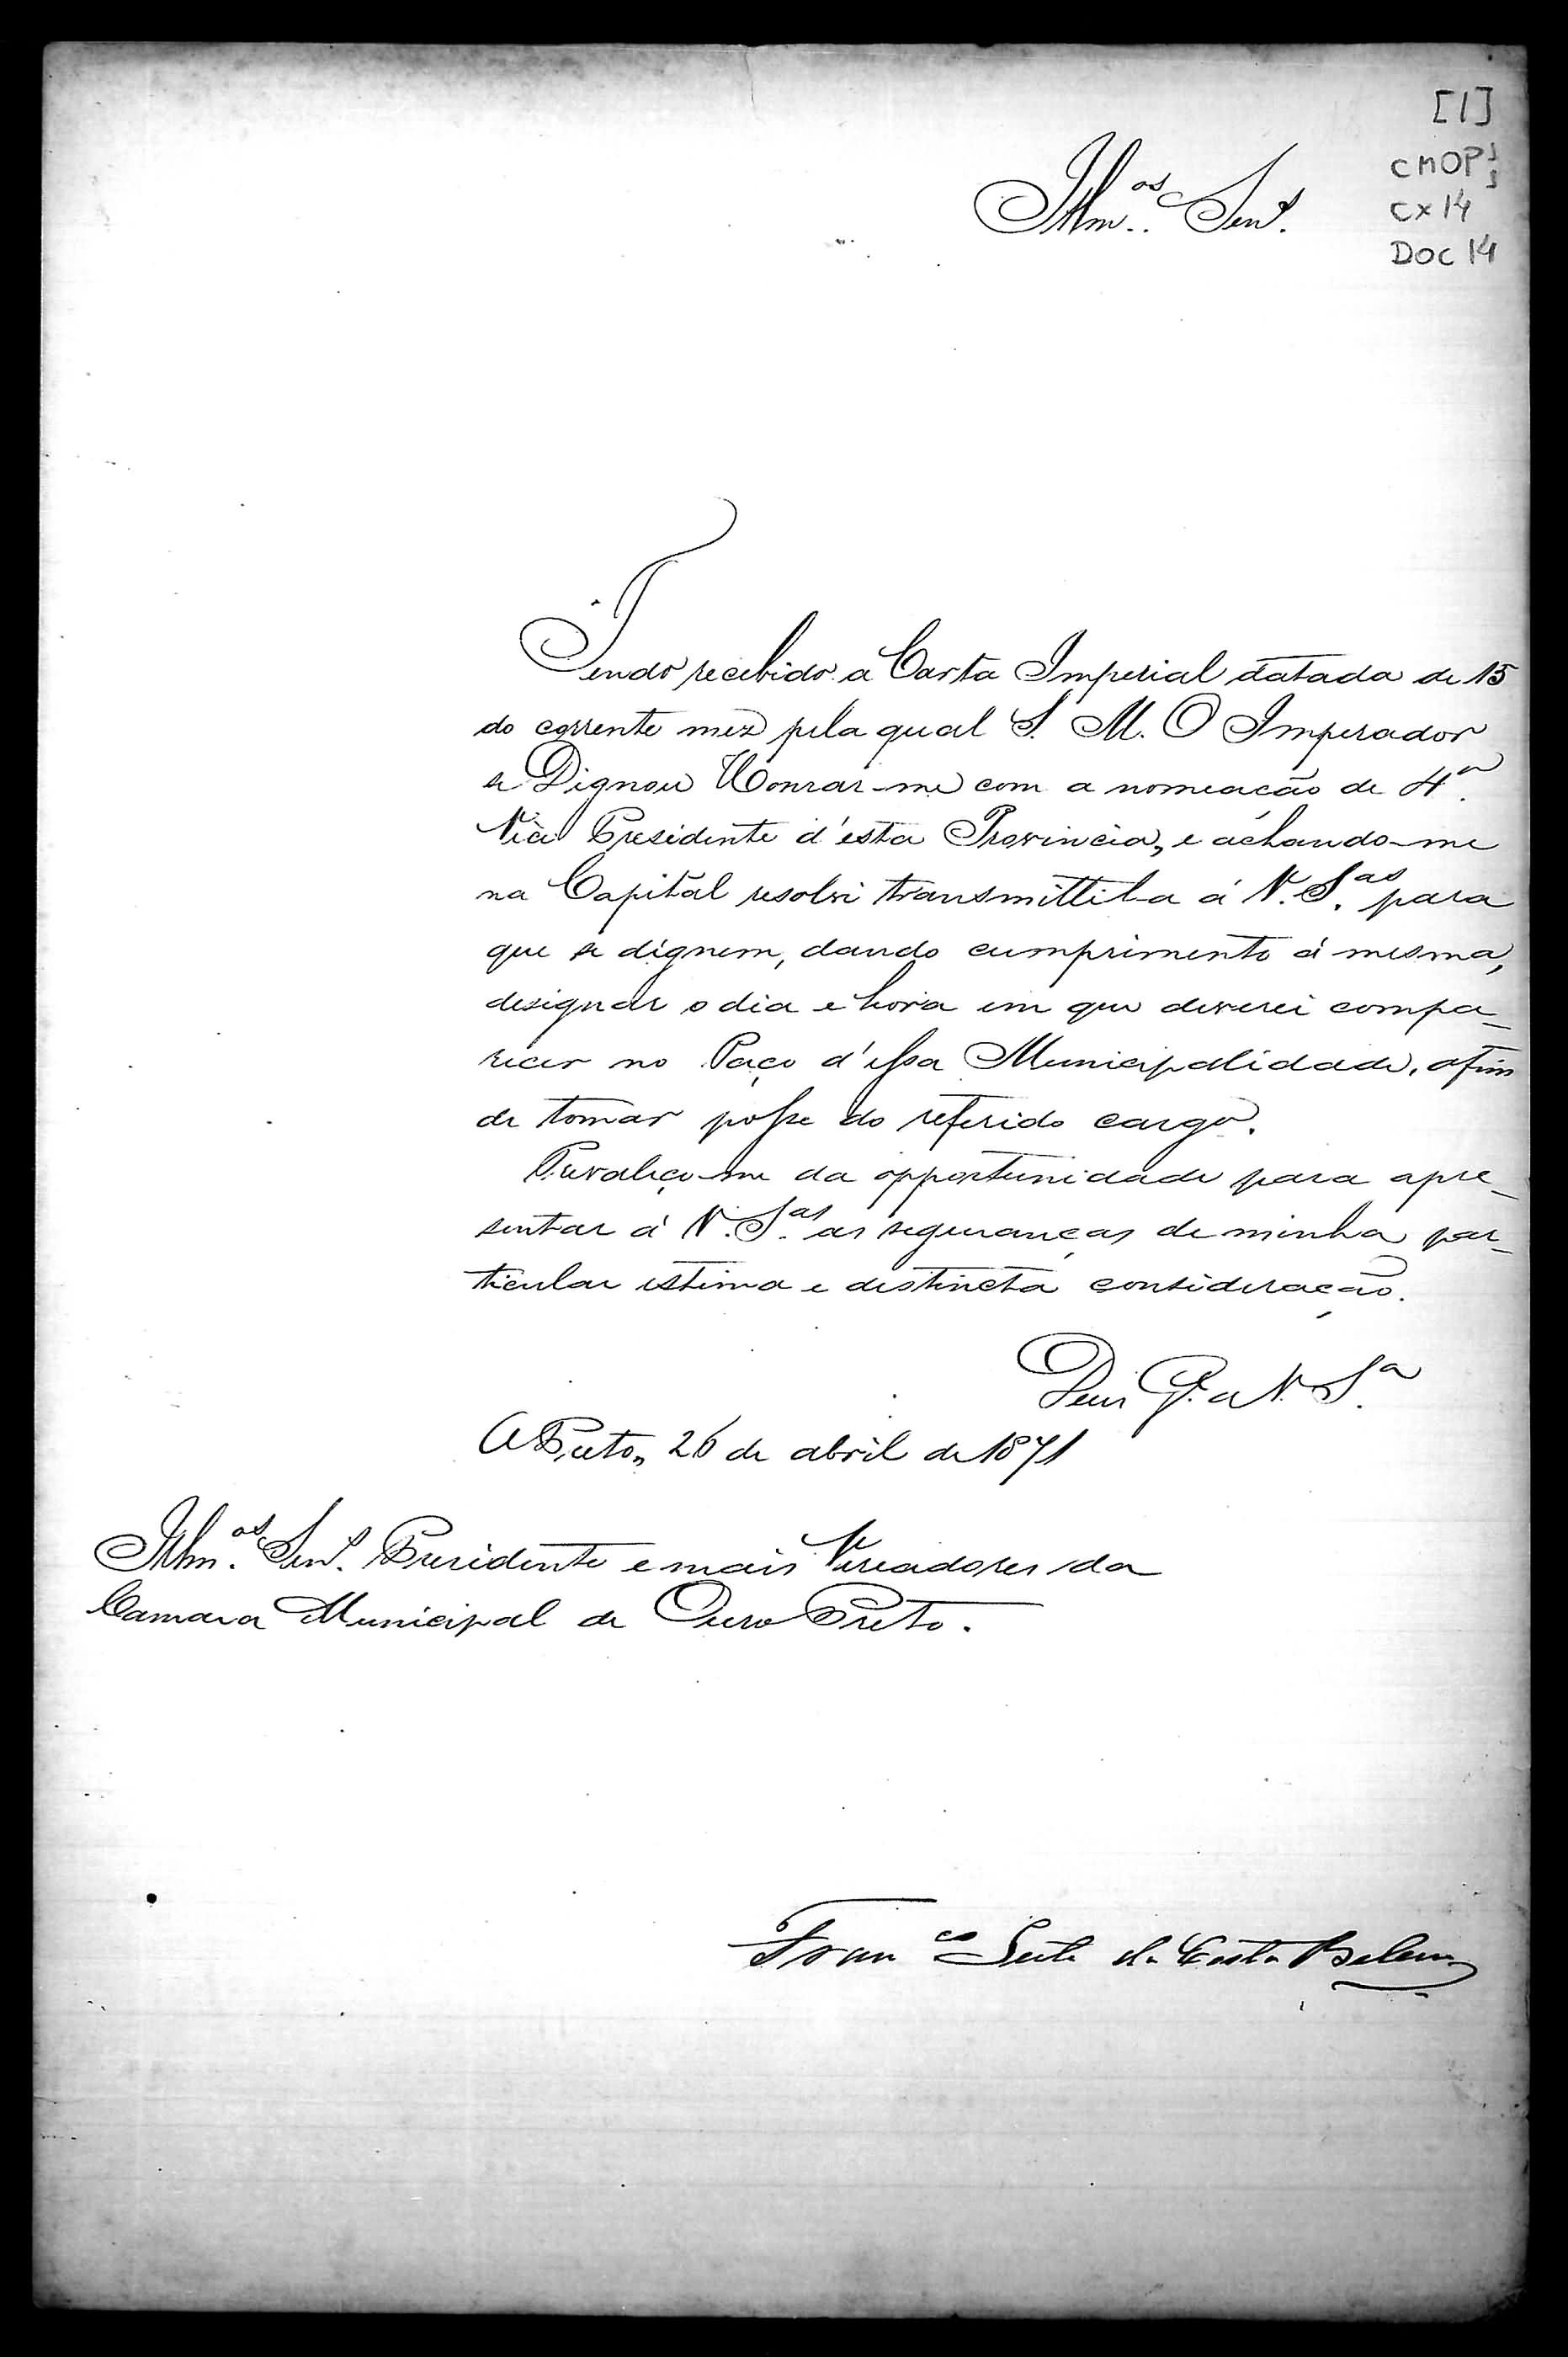 [1]
CMOP
Cx 14
DOC 14
Illm.os Sen.s
Tendo recebido a Carta Imperial datada de 15
do corrente mez pela qual S. M. O Imperador
se Dignou Honrar-me com a nomeação de 4.o
Vice Presidente d'esta Provincia, e achando-me
na Capital resolvi transmittil-a á V. S.as para
que se dignem, dando cumprimento á mesma,
designar o dia e hora em que deverei compa-
recer no Paço d'essa Municipalidade, afim
de tomar posse do referido cargo.
Prevaleço-me da opportunidade para apre-
sentar á V. S.as as seguranças de minha par-
ticular estima e distincta consideração.
Deus G.e a V. S.a
O Preto, 26 de abril de 1871
Illm.os Sen.s Presidente e mais Vereadores da
Camara Municipal de Ouro Preto.
Fran co Leite da Costa Belem